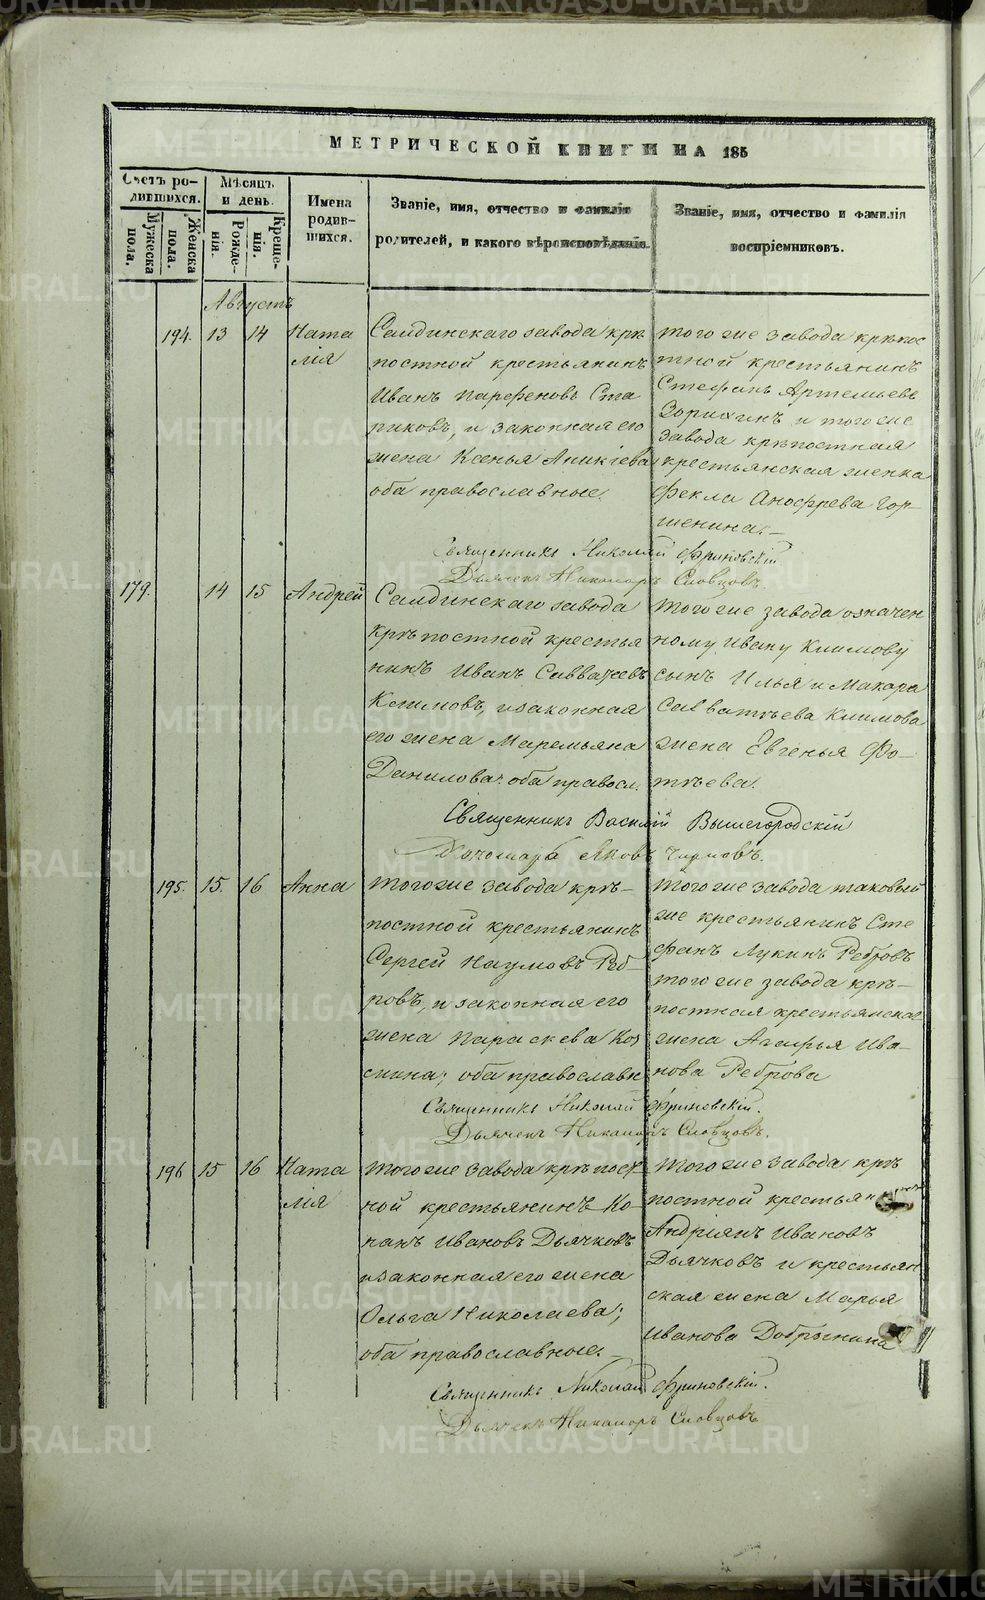 МЕТРИЧЕСКОЙ КНИГИ НА 185
Счетъ ро-
дившихся.
Мужеска
пола.
Женска
пола.
Мѣсяцъ
и день.
Рожде-
нія.
Креще-
нія.
Имена
родив-
шихся.
Званіе, имя, отчество и фамилія
родителей, и какого вѣроисповѣданія.
Званіе, имя, отчество и фамилія
воспріемниковъ.
Августъ
194. 13 14 Ната
лія
Салдинскаго завода крѣ
постной крестьянинъ
Иванъ Парфеновъ Ста
риковъ, и законная его
жена Ксенья Аникіева
оба православные.
того же завода крѣпос
тной крестьянинъ
Стефанъ Артемьевъ
Зорихинъ и того же
завода крѣпостная
крестьянская женка
Фекла Анофрева Гор-
шенина.
Священникъ Николай Фриновскій
Дьячекъ Никаноръ Словцовъ.
179. 14 15 Андрей
Салдинскаго завода
крѣпостной крестья
нинъ Иванъ Савватѣевъ
Климовъ, и законная
его жена Маремьяна
Данилова. оба правосл.
того же завода означен
ному Ивану Климову
сынъ Илья и Макара
Савватѣева Климова
жена Евгенья Фо-
тѣева.
Священникъ Василій Вышегородскій
Пономарь Яковъ
195. 15. 16 Анна
того же завода крѣ-
постной крестьянинъ
Сергей Наумовъ Реб-
ровъ, и законная его
жена Параскева Коз
мина; оба православн
того же завода таковый
же крестьянинъ Сте
фанъ Лукинъ Ребровъ
того же завода крѣ-
постная крестьянская
жена Агафья Ива-
нова Реброва
Священникъ Николай Фриновскій.
Дьячекъ Никаноръ Словцовъ.
196 15 16 Ната
лія
того же завода крѣпост
ной крестьянинъ Ко-
нанъ Ивановъ Дьячковъ
и законная его жена
Ольга Николаева;
оба православные.
того же завода крѣ
постной крестьян
Андріянъ Ивановъ
Дьячковъ и крестьян
ская жена Марья
Иванова Добрынина
Священникъ Николай Фриновскій.
Дьячекъ Никаноръ Словцовъ
METRIKI.GASO-URAL.RU